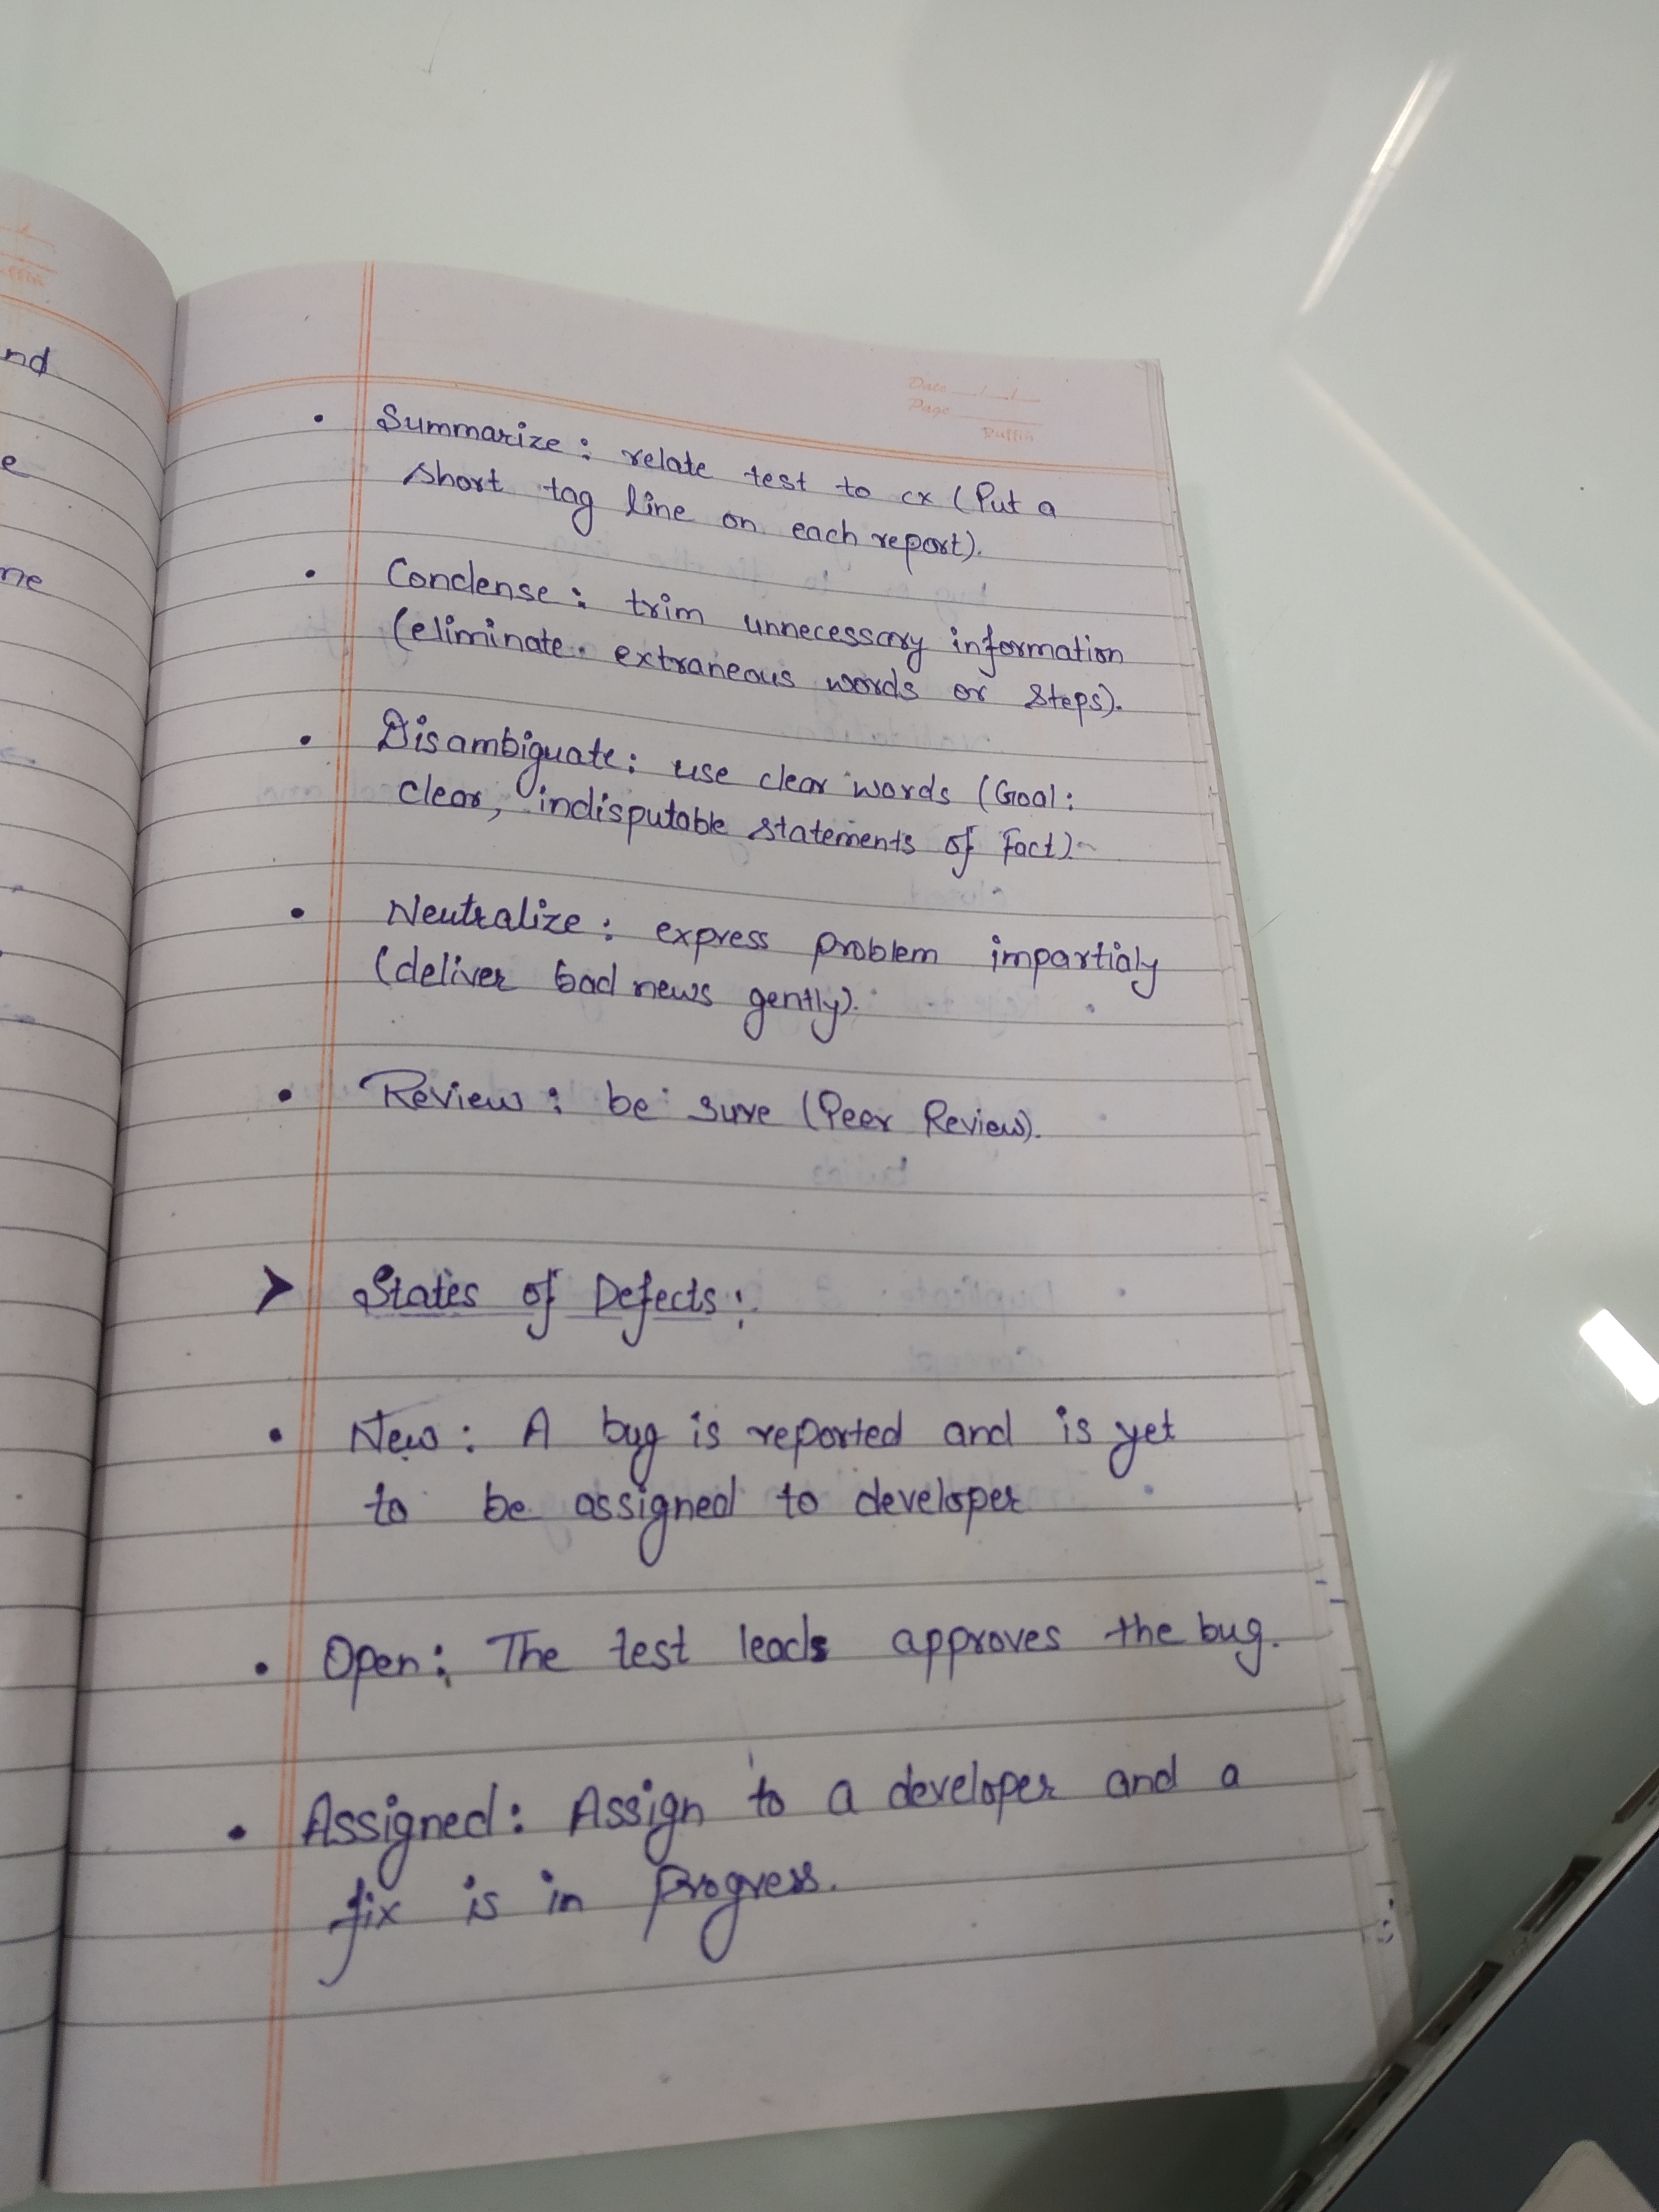 nd
e
ne
Date
Page
• Summarize : relate test to cx (Put a
short tag line on each report).
• Condense : trim unnecessary information
(eliminate extraneous words or steps).
• Disambiguate : use clear words (Goal :
clear, indisputable statements of fact).
• Neutralize : express problem impartialy
(deliver bad news gently).
• Review : be sure (Peer Review).
➤ States of Defects :
• New : A bug is reported and is yet
to be assigned to developer
• Open : The test leads approves the bug.
• Assigned : Assign to a developer and a
fix is in progress.